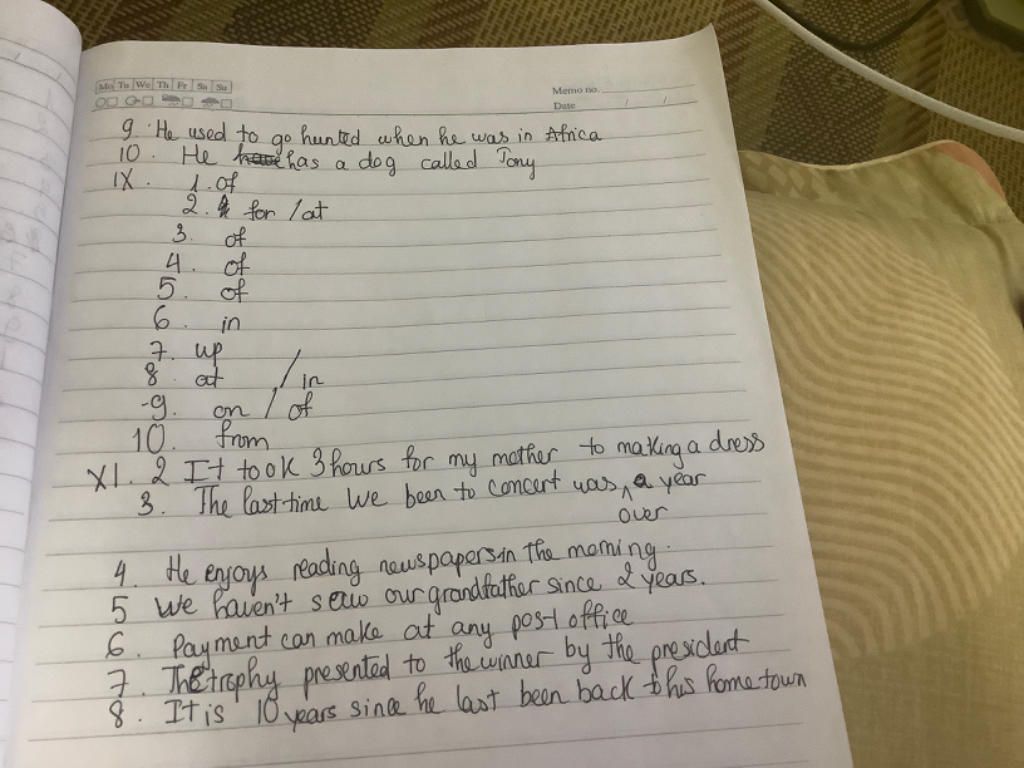 Mo Tu We Th Fr Sa Su
Memo no.
Date / /
9. He used to go hunted when he was in Africa
10. He has a dog called Tony
IX. 1. of
2. for / at
3. of
4. of
5. of
6. in
7. up
8. at / in
-9. on / of
10. from
XI. 2 It took 3 hours for my mother to making a dress
3. The last time We been to concert was over a year
4. He enjoys reading newspapers in the morning.
5 We haven't saw our grandfather since 2 years.
6. Payment can make at any post office
7. The trophy presented to the winner by the president
8. It is 10 years since he last been back to his home town